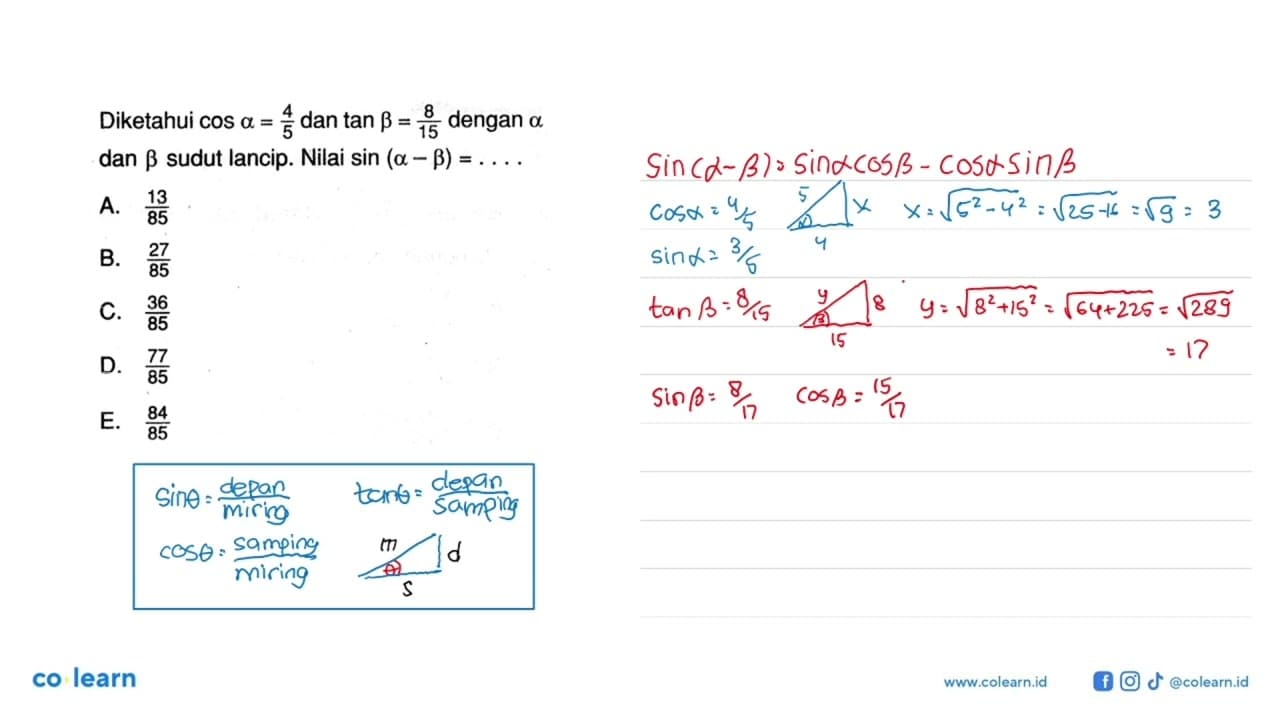 Diketahui cos α = 4/5 dan tan β = 8/15 dengan α
dan β sudut lancip. Nilai sin (α – β) = . . . .
A. 13/85
B. 27/85
C. 36/85
D. 77/85
E. 84/85
sinθ = depan/miring tanθ = depan/samping
cosθ = samping/miring
m
d
θ
s
sin(α-β) = sinα cosβ - cosα sinβ
cosα = 4/5 5 α 4 x x = √5² - 4² = √25-16 = √9 = 3
sinα = 3/5
tan β = 8/15 y β 15 8 y = √8² + 15² = √64+225 = √289
= 17
sinβ = 8/17 cosβ = 15/17
co learn
www.colearn.id @colearn.id